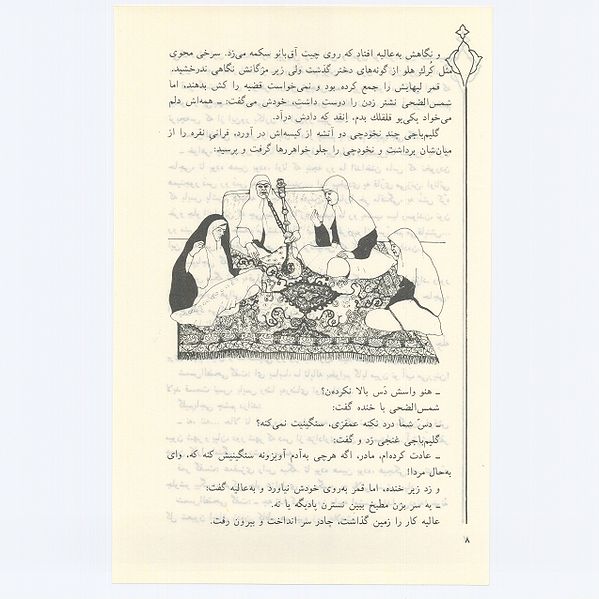 و نگاهش به‌عالیه افتاد که روی چیت آق‌بانو سکمه می‌زد. سرخی محوی
مثل کُرک هلو از گونه‌های دختر گذشت ولی زیر مژگانش نگاهی ندرخشید.
قمر لبهایش را جمع کرده بود و نمی‌خواست قضیه را کش بدهند، اما
شمس‌الضحیٰ نشتر زدن را دوست داشت، خودش می‌گفت: ـ همه‌اش دلم
می‌خواد یکی‌یو قلقلک بدم، اِنقِد که دادش درآد.
گلیم‌باجی چند نخودچی دو آتشه از کیسه‌اش در آورد، قرانی نقره را از
میان‌شان برداشت و نخودچی را جلو خواهرها گرفت و پرسید:
ـ هنو واسش دَس بالا نکردەن؟
شمس‌الضحی با خنده گفت:
ـ دسّ شما درد نکنه عمقزی، سنگینیت نمی‌کنه؟
گلیم‌باجی غنجی زد و گفت:
ـ عادت کرده‌ام، مادر، اگه هرچی به‌آدم آویزونه سنگینیش کنه که، وای
به‌حال مردا!
و زد زیر خنده، اما قمر به‌روی خودش نیاورد و به‌عالیه گفت:
ـ یه سر بزن مطبخ ببین نسترن بادیگه یا نه.
عالیه کار را زمین گذاشت، چادر سر انداخت و بیرون رفت.
۸